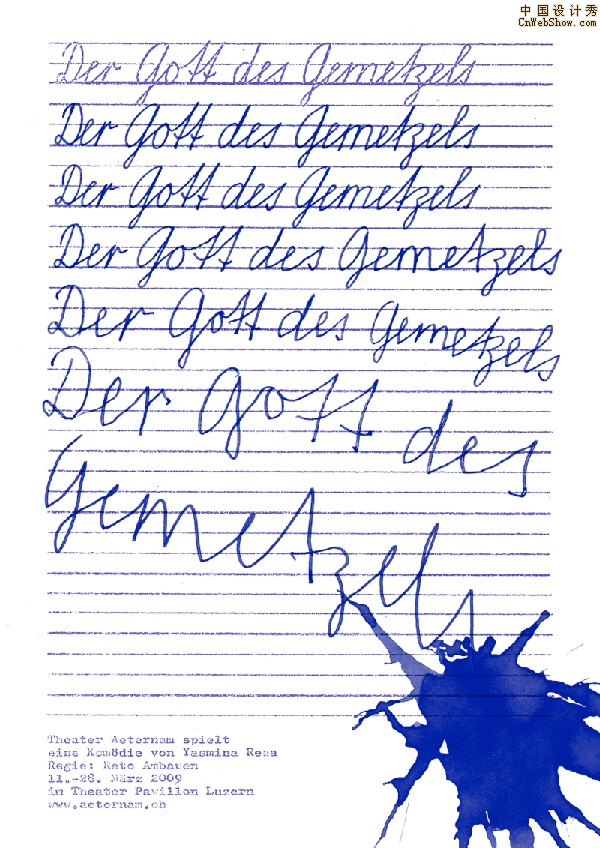 中国设计秀
CnWebShow.com
Der Gott des Gemetzels
Der Gott des Gemetzels
Der Gott des Gemetzels
Der Gott des Gemetzels
Der Gott des Gemetzels
Der Gott des
Gemetzels
Theater Aeternam spielt
eine Komödie von Yasmina Reza
Regie: Reto Ambauen
11.-28. März 2009
im Theater Pavillon Luzern
www.aeternam.ch